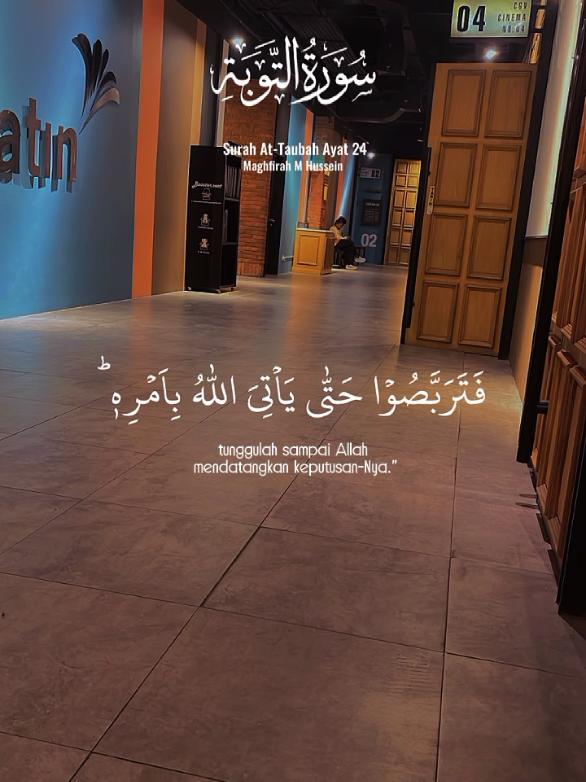 CGV
04 CINEMA
NO.04
سُورَةُ التَّوْبَةِ
atın
Surah At-Taubah Ayat 24
Maghfirah M Hussein
02
فَتَرَبَّصُوْا حَتّٰى يَأْتِيَ اللّٰهُ بِاَمْرِهٖۗ
tunggulah sampai Allah
mendatangkan keputusan-Nya."